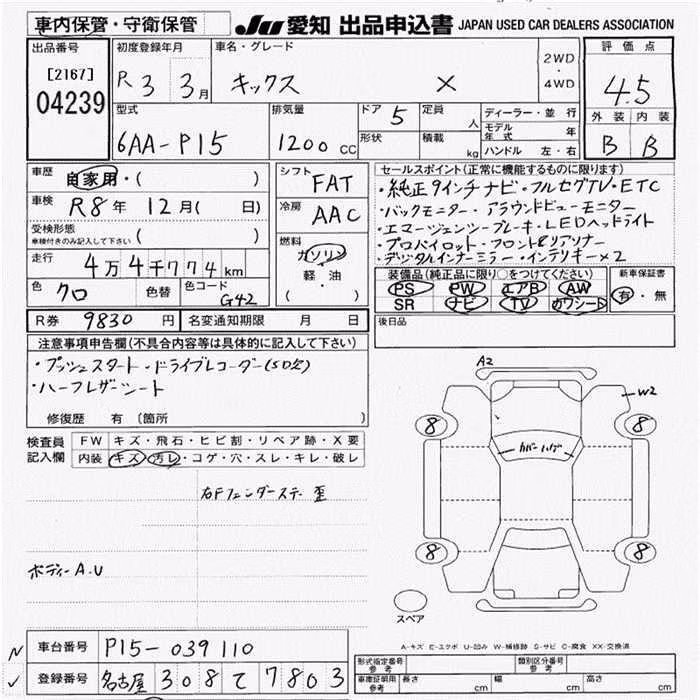 車内保管・守衛保管 JU 愛知 出品申込書 JAPAN USED CAR DEALERS ASSOCIATION
出品番号 初度登録年月 車名・グレード 2WD ・ 4WD 評価点
[2167] R 3 3月 キックス X 4.5
04239
型式 排気量 ドア 5 定員 人 ディーラー・並行 外装 内装
6AA-P15 1200 CC 形状 積載 kg モデル年式 年 B B
ハンドル 左・右
車歴 自家用・( ) シフト FAT セールスポイント(正常に機能するものに限ります)
車検 R8年 12月( 日) 冷房 AAC ・純正9インチナビ・フルセグTV・ETC
・バックモニター・アラウンドビューモニター
受検形態 車検付きのみ記入して下さい ( ) 燃料 ガソリン ・エマージェンシーブレーキ・LEDヘッドライト
走行 4万4千774km 軽・油 ・プロパイロット・フロント&リアソナー
・デジタルインナーミラー・インテリキー×2
色 クロ 色替 色コード G42 ( ) 装備品(純正品に限り○をつけてください) 新車保証書
PS PW エアB AW 有・無
SR ナビ TV カワシート
R券 9830円 名変通知期限 月 日 後日品
注意事項申告欄(不具合内容等は具体的に記入して下さい)
・プッシュスタート・ドライブレコーダー(SD欠)
・ハーフレザーシート
修復歴 有 〔箇所 〕
検査員記入欄 FW キズ・飛石・ヒビ割・リペア跡・X要
内装 キズ・汚レ・コゲ・穴・スレ・キレ・破レ
A2
W2
8 8
カバーハゲ
右Fフェンダーステー歪
ボディーA.U
8 8
スペア
A-キズ E-エクボ U-凹み W-補修跡 S-サビ C-腐食 XX-交換済
N 車台番号 P15-039110 形式指定番号 参考 類別区分番号 参考
✓ 登録番号 名古屋 308 て 7803 車庫証明用 参考 長さ cm 幅 cm 高さ cm